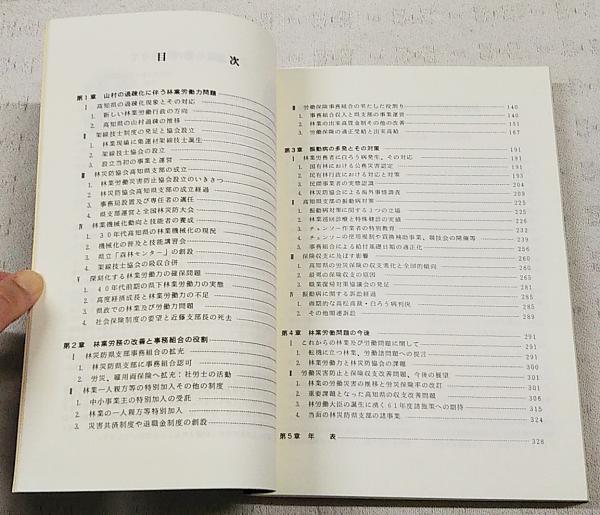 目 次
第1章 山村の過疎化に伴う林業労働力問題
Ⅰ 高知県の過疎化現象とその対応
1. 新しい林業労働行政の方向
2. 高知県の山村過疎の推移
Ⅱ 架線技士制度の発足と協会設立
1. 林業現場に集運材架線技士誕生
2. 架線技士協会の設立
3. 設立当初の事業と運営
Ⅲ 林災防協会高知県支部の成立
1. 林業労働災害防止協会設立のいきさつ
2. 林災防協会高知県支部の成立経過
3. 事務局設置及び専任者の選任
4. 県支部運営と全国林災防大会
Ⅳ 林業機械化動向と技能者の養成
1. 30年代高知県林業機械化の現況
2. 機械化の普及と技能講習会
3. 県立「森林センター」の創設
4. 架線技士協会の吸収合併
Ⅴ 深刻化する林業労働力の確保問題
1. 40年代前期の県下林業労働力の実態
2. 高度経済成長と林業労働力の不足
3. 県政での林業及び労働力問題
4. 社会保険制度の要望と近藤支部長の死去
第2章 林業労務の改善と事務組合の役割
Ⅰ 林災防県支部事務組合の拡充
1. 林災防県支部に事務組合認可
2. 労災、雇用両保険へ拡充：社労士の活動
Ⅱ 林業一人親方等の特別加入その他の制度
1. 中小事業主の特別加入の受託
2. 林業の一人親方等特別加入
3. 災害共済制度や退職金制度の創設
Ⅲ 労働保険事務組合の果たした役割り 140
1. 事務組合収入と県支部の事業運営 140
2. 林業の出来高賃金制その他の改善 151
3. 労働保険の適正受給と出来高給 167
第3章 振動病の多発とその対策 191
Ⅰ 林業労務者に白ろう病発生、その対応 191
1. 国有林における公務災害認定 191
2. 民有林行政における対応と対策
3. 民間事業者の実態認識 204
4. 林災防協会による海外事情調査
Ⅱ 高知県支部の振動病対策
1. 振動病対策に関する3つの立場
2. 林業巡回診療と特殊検診の実績
3. チェンソー作業者の特別教育
4. チェンソーの使用規制や買換補助事業、競技会の開催等
5. 事務組合による給付基礎日額の適正化
Ⅲ 保険収支に及ぼす影響
1. 高知県の労災保険の収支悪化と全国的傾向
2. 最悪の保険収支の原因
3. 職業保障対策協議会の発足
Ⅳ 振動病に関する訴訟経過
1. 画期的な高松高裁・白ろう病判決 285
2. その他関連訴訟 289
第4章 林業労働問題の今後 291
Ⅰ これからの林業及び労働問題に関して 291
1. 転機に立つ林業、労働諸問題への提言 291
2. 林業労働力と林災防協会の課題
Ⅱ 労働災害防止と保険収支改善問題、今後の展望
1. 林業の労働災害の推移と労災保険率の改訂
2. 重要課題となった高知県の収支改善問題
3. 林労働大臣の誕生に湧く61年度諸施策への期待 315
4. 当面の林災防県支部の諸事業 324
第5章 年 表 328